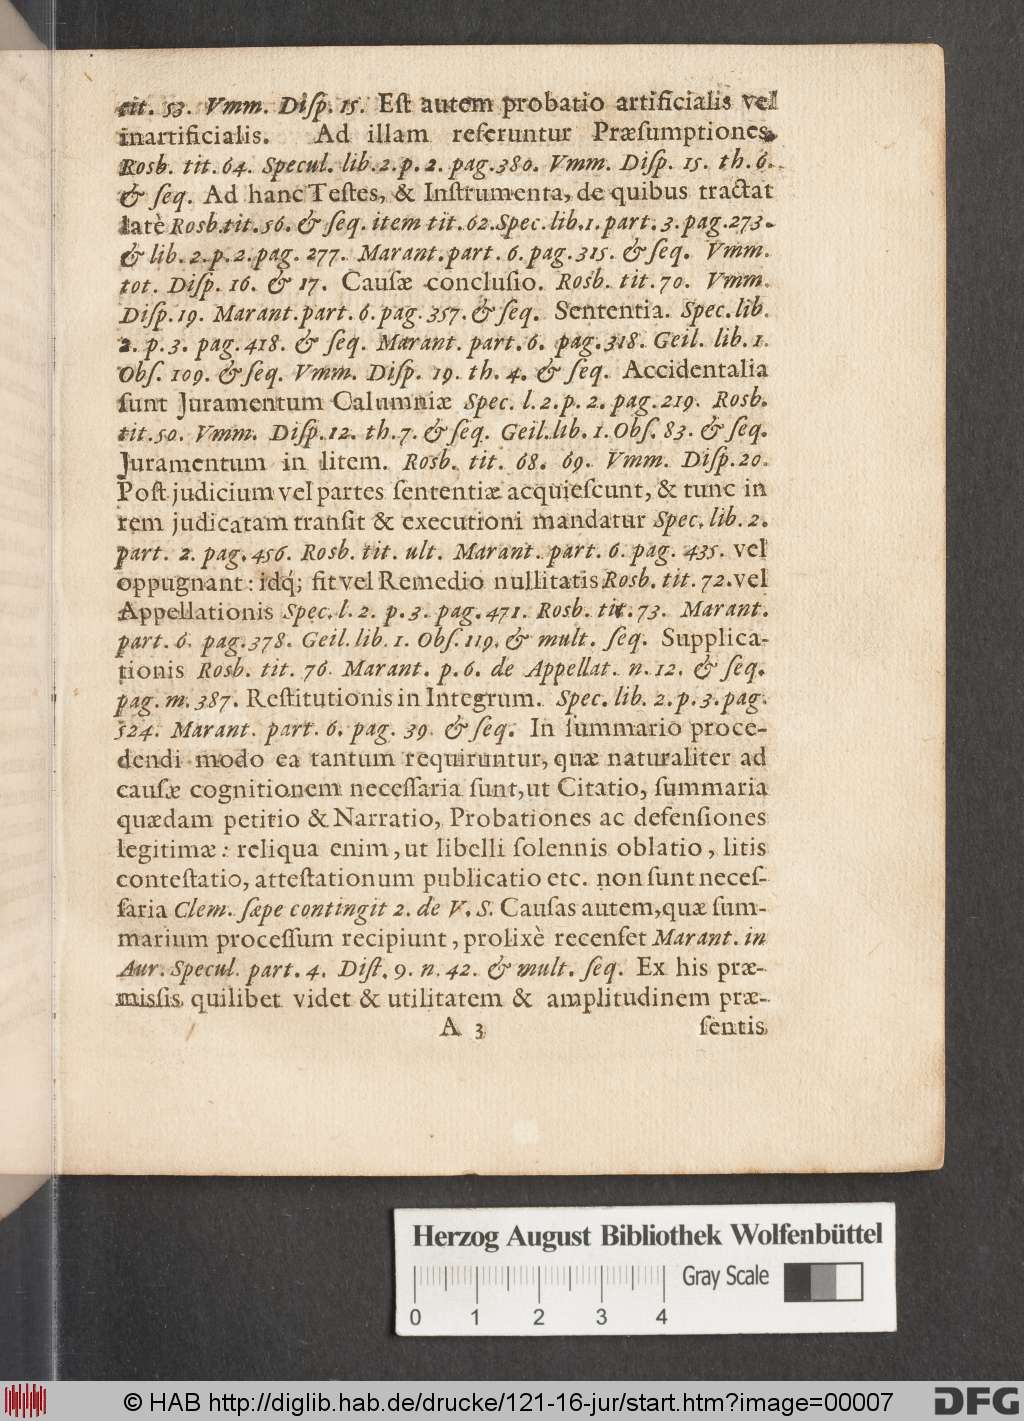 tit. 53. Vmm. Diſp. 15. Eſt autem probatio artificialis vel
inartificialis. Ad illam referuntur Præſumptiones,
Rosb. tit. 64. Specul. lib. 2. p. 2. pag. 380. Vmm. Diſp. 15. th. 6.
& ſeq. Ad hanc Teſtes, & Inſtrumenta, de quibus tractat
latè Rosb. tit. 56. & ſeq. item tit. 62. Spec. lib. 1. part. 3. pag. 273.
& lib. 2. p. 2. pag. 277. Marant. part. 6. pag. 315. & ſeq. Vmm.
tot. Diſp. 16. & 17. Cauſæ concluſio. Rosb. tit. 70. Vmm.
Diſp. 19. Marant. part. 6. pag. 357. & ſeq. Sententia. Spec. lib.
2. p. 3. pag. 418. & ſeq. Marant. part. 6. pag. 318. Geil. lib. 1.
Obſ. 109. & ſeq. Vmm. Diſp. 19. th. 4. & ſeq. Accidentalia
ſunt Juramentum Calumniæ Spec. l. 2. p. 2. pag. 219. Rosb.
tit. 50. Vmm. Diſp. 12. th. 7. & ſeq. Geil. lib. 1. Obſ. 83. & ſeq.
Juramentum in litem. Rosb. tit. 68. 69. Vmm. Diſp. 20.
Poſt judicium vel partes ſententiæ acquieſcunt, & tunc in
rem judicatam tranſit & executioni mandatur Spec. lib. 2.
part. 2. pag. 456. Rosb. tit. ult. Marant. part. 6. pag. 435. vel
oppugnant: idq́; fit vel Remedio nullitatis Rosb. tit. 72. vel
Appellationis Spec. l. 2. p. 3. pag. 471. Rosb. tit. 73. Marant.
part. 6. pag. 378. Geil. lib. 1. Obſ. 119. & mult. ſeq. Supplica-
tionis Rosb. tit. 76. Marant. p. 6. de Appellat. n. 12. & ſeq.
pag. m. 387. Reſtitutionis in Integrum. Spec. lib. 2. p. 3. pag.
524. Marant. part. 6. pag. 39. & ſeq. In ſummario proce-
dendi modo ea tantum requiruntur, quæ naturaliter ad
cauſæ cognitionem neceſſaria ſunt, ut Citatio, ſummaria
quædam petitio & Narratio, Probationes ac defenſiones
legitimæ: reliqua enim, ut libelli ſolennis oblatio, litis
conteſtatio, atteſtationum publicatio etc. non ſunt neceſ-
ſaria Clem. ſæpe contingit 2. de V. S. Cauſas autem, quæ ſum-
marium proceſſum recipiunt, prolixè recenſet Marant. in
Aur. Specul. part. 4. Diſt. 9. n. 42. & mult. ſeq. Ex his præ-
miſſis quilibet videt & utilitatem & amplitudinem præ-
A 3 ſentis
Herzog August Bibliothek Wolfenbüttel
Gray Scale
0 1 2 3 4
© HAB http://diglib.hab.de/drucke/121-16-jur/start.htm?image=00007
DFG